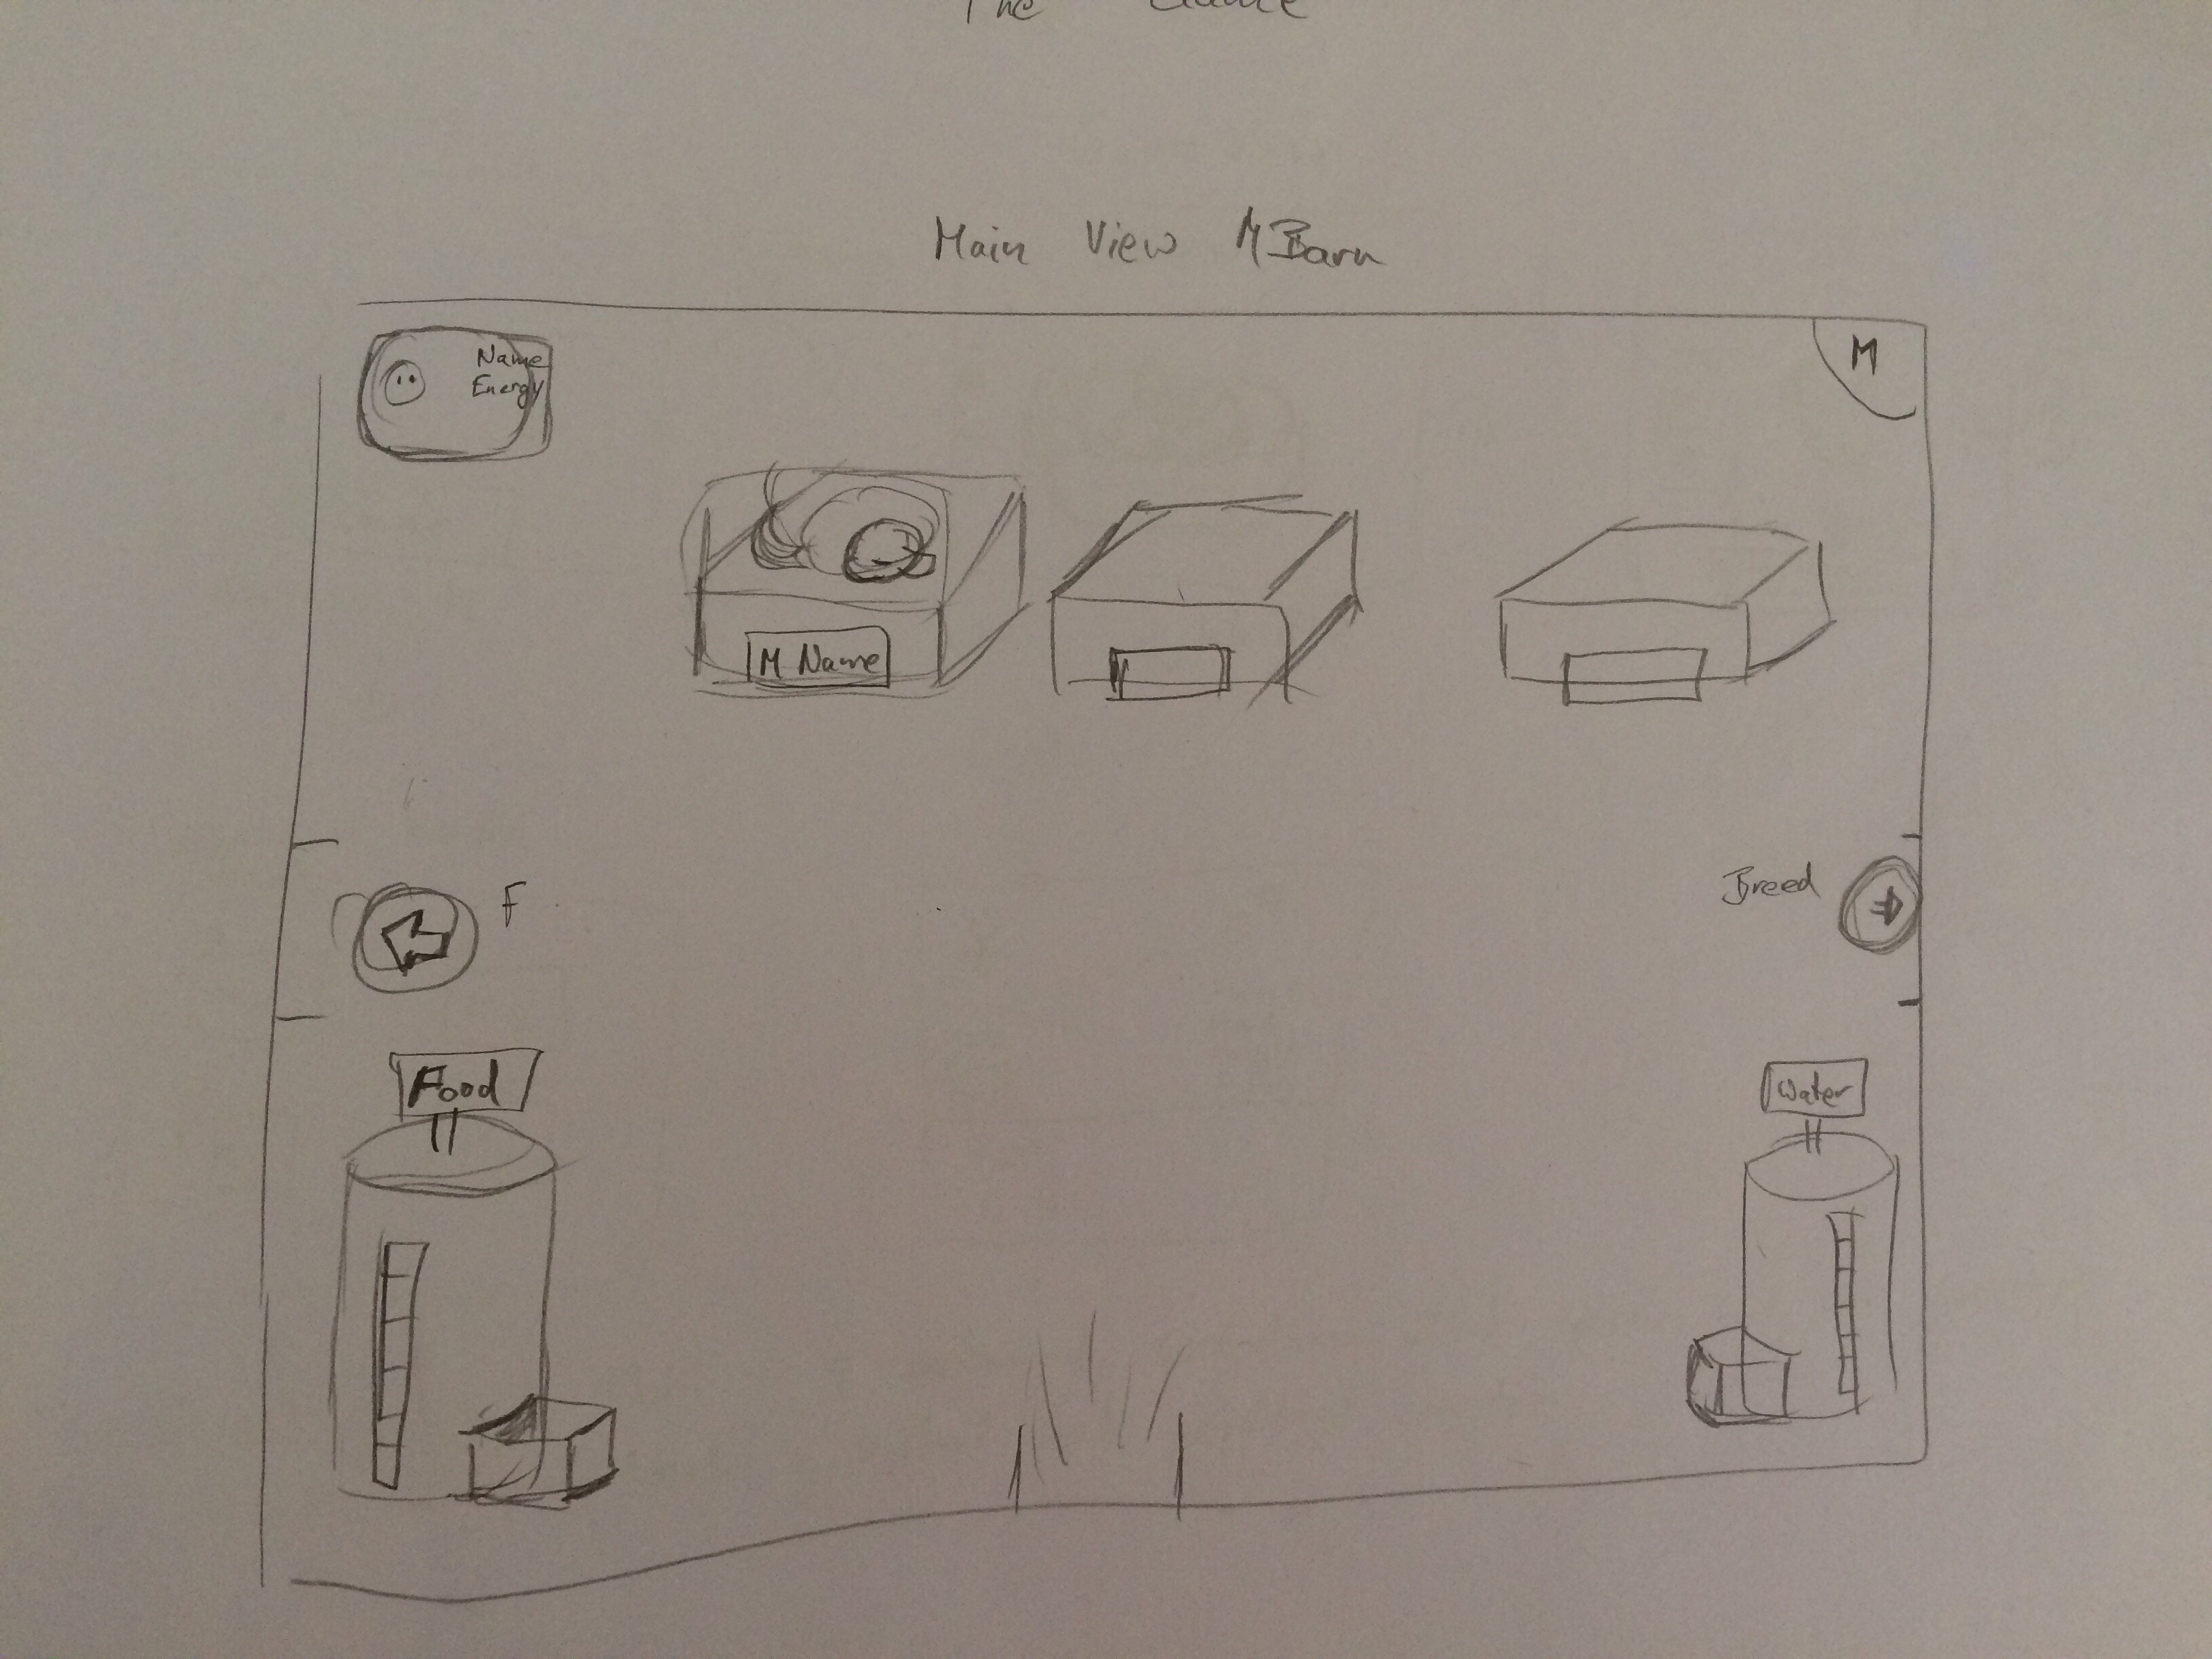 The Game
Main View M Barn
Name
Energy
M
M Name
F
Breed
Food
Water